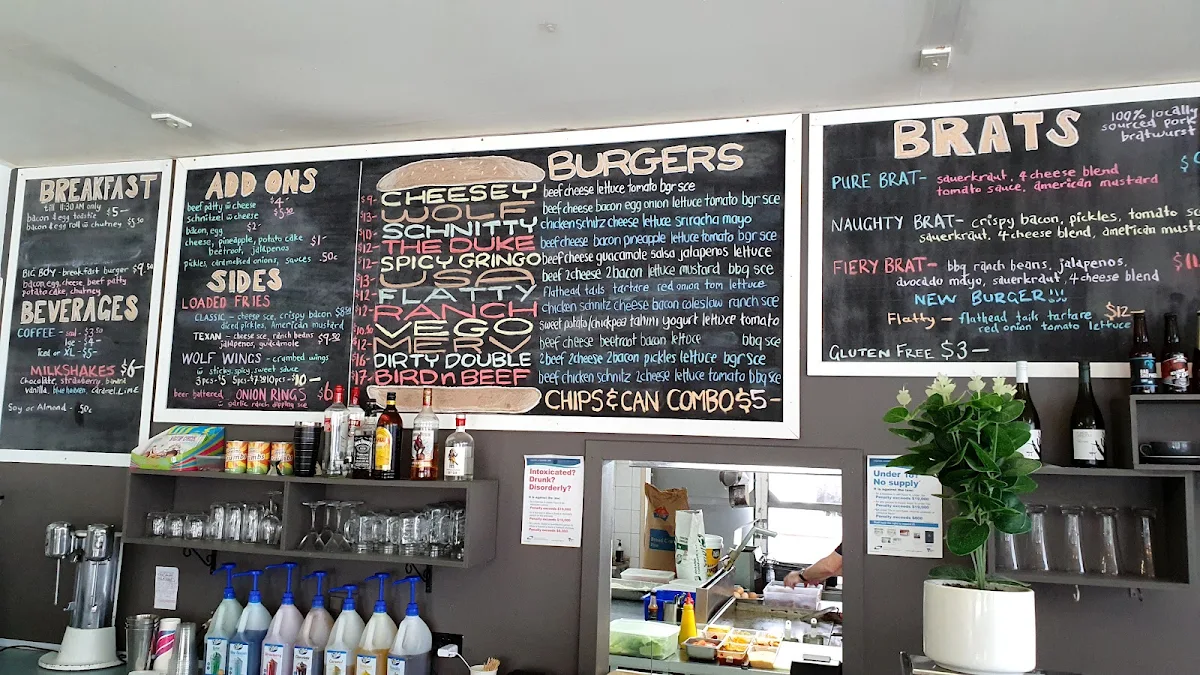 BREAKFAST
till 11:30 AM only
bacon & egg toastie $5-
bacon & egg roll w chutney $5.50
BIG BOY - breakfast burger $9.50
bacon, egg, cheese, beef patty
potato cake, chutney
BEVERAGES
COFFEE - sml - $3.50
lge - $4-
Iced or XL - $5-
MILKSHAKES $6-
Chocolate, strawberry, banana
vanilla, blue heaven, caramel, Lime
Soy or Almond - 50c
ADD ONS
beef patty w cheese $4-
schnitzel w cheese $5.50
bacon, egg $2-
cheese, pineapple, potato cake $1-
beetroot, jalapenos
pickles, caramelised onions, sauces .50c
SIDES
LOADED FRIES
CLASSIC - cheese sce, crispy bacon
diced pickles, American mustard
TEXAN - cheese sce, ranch beans $9.50
jalapeno, guacamole
WOLF WINGS - crumbed wings
w sticky, spicy, sweet sauce
3pcs $5 5pcs 10pcs $10-
beer battered ONION RINGS $6
w garlic ranch dipping sce
BURGERS
$9- CHEESEY beef cheese lettuce tomato bgr sce
$13- WOLF beef cheese bacon egg onion lettuce tomato bgr sce
$10- SCHNITTY chicken schnitz cheese lettuce sriracha mayo
$12- THE DUKE beef cheese bacon pineapple lettuce tomato bgr sce
$12- SPICY GRINGO beef cheese guacamole salsa jalapenos lettuce
USA beef 2cheese 2bacon lettuce mustard bbq sce
$12 FLATTY flathead tails tartare red onion tom lettuce
RANCH chicken schnitz cheese bacon coleslaw ranch sce
$10.50 VEGO sweet potato/chickpea tahini yogurt lettuce tomato
$12- MERV beef cheese beetroot bacon lettuce bbq sce
$16- DIRTY DOUBLE 2beef 2cheese 2bacon pickles lettuce bgr sce
$17- BIRD n BEEF beef chicken schnitz 2cheese lettuce tomato bbq sce
CHIPS & CAN COMBO $5-
BRATS
100% locally
sourced pork
bratwurst
PURE BRAT- sauerkraut, 4 cheese blend
tomato sauce, american mustard
NAUGHTY BRAT- crispy bacon, pickles, tomato
sauerkraut, 4-cheese blend, american
FIERY BRAT- bbq ranch beans, jalapenos,
avocado mayo, sauerkraut, 4 cheese blend
NEW BURGER!!!
Flatty- flathead tails tartare $12-
red onion tomato lettuce
GLUTEN FREE $3-
Intoxicated?
Drunk?
Disorderly?
It is against the law:
Under
No supply
It is against the law: